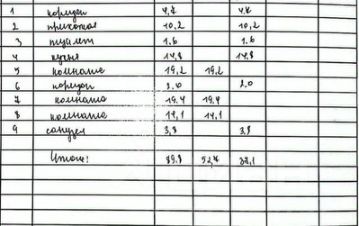 1 коридор 4,7 4,7
2 прихожая 10,2 10,2
3 туалет 1.6 1.6
4 кухня 14,8 14,8
5 комната 19,2 19,2
6 коридор 2.0 2.0
7 комната 19.4 19,4
8 комната 14,1 14,1
9 санузел 3,8 3,8
Итого: 89.8 52,7